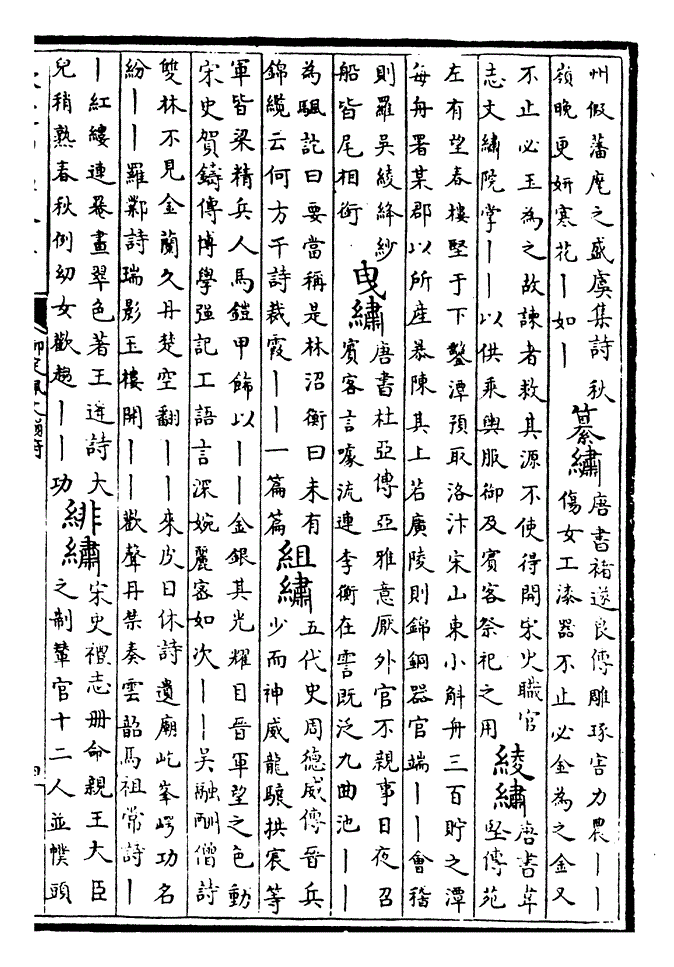 州假藩麾之盛虞集詩秋
嶺晚更妍寒花丨如丨
纂繡
唐書褚遂良傳雕琢害力農丨丨
傷女工漆器不止必金為之金又
不止必玉為之故諫者救其源不使得開宋史職官
志文繡院掌丨丨以供乘輿服御及賓客祭祀之用
綾繡
唐書韋
堅傳苑
左有望春樓堅于下鑿潭預取洛汴宋山東小斛舟三百貯之潭
每舟署某郡以所產暴陳其上若廣陵則錦銅器官端丨丨會稽
則羅吳綾絳紗
船皆尾相銜
曳繡
唐書杜亞傳亞雅意厭外官不親事日夜召
賓客言噱流連李衡在雲既泛九曲池丨丨
為颿詫曰要當稱是林沼衡曰未有
錦纜云何方干詩裁霞丨丨一篇篇
組繡
五代史周德威傳晉兵
少而神威龍驤拱宸等
軍皆梁精兵人馬鎧甲飾以丨丨金銀其光耀目晉軍望之色動
宋史賀鑄傳博學強記工語言深婉麗密如次丨丨吳融酬僧詩
雙林不見金蘭久丹楚空翻丨丨來皮日休詩遺廟屹峯崿功名
紛丨丨羅鄴詩瑞影玉樓開丨丨歡聲丹禁奏雲韶馬祖常詩丨
丨紅縷連卷畫翠色著王逢詩大
兒稍熟春秋例幼女歡趨丨丨功
緋繡
宋史禮志冊命親王大臣
之制輦官十二人並幞頭